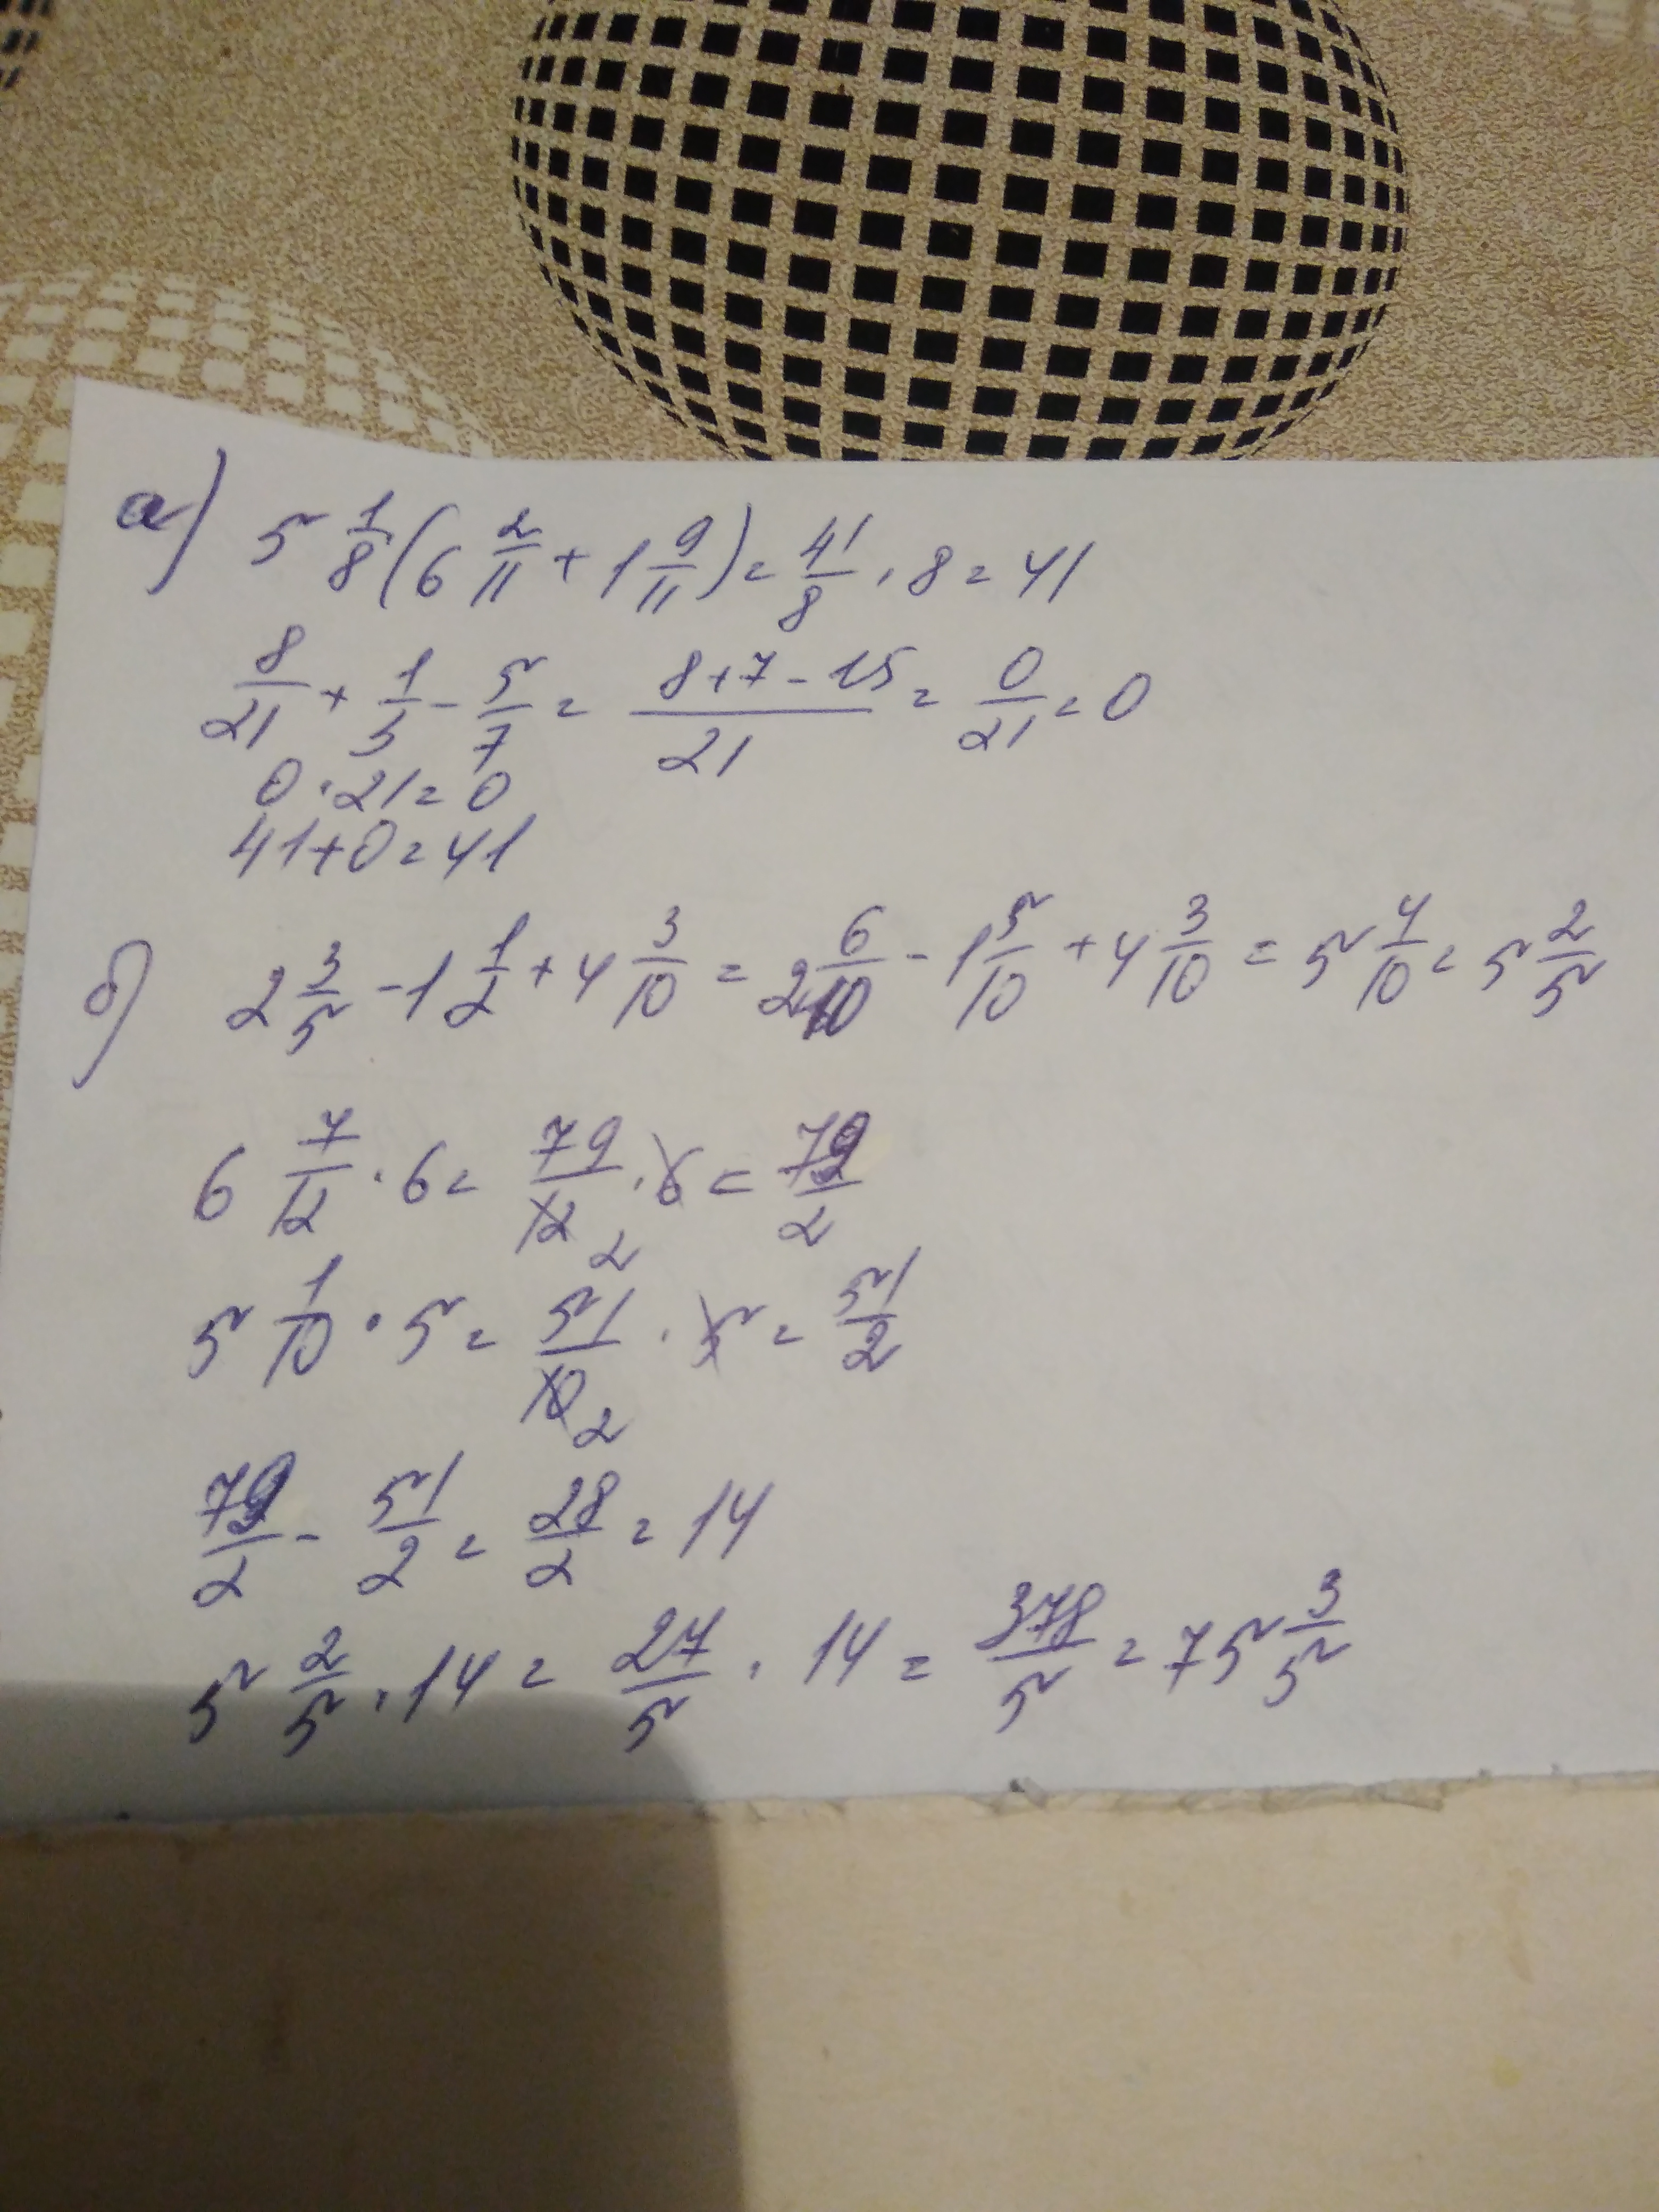 а) 5 1/8 (6 2/11 + 1 9/11) = 41/8 · 8 = 41
8/21 + 1/3 - 5/7 = (8+7-15)/21 = 0/21 = 0
0 · 21 = 0
41 + 0 = 41
б) 2 3/5 - 1 1/2 + 4 3/10 = 2 6/10 - 1 5/10 + 4 3/10 = 5 4/10 = 5 2/5
6 7/12 · 6 = 79/12 2 · 6 = 79/2
5 1/10 · 5 = 51/10 2 · 5 = 51/2
79/2 - 51/2 = 28/2 = 14
5 2/5 · 14 = 27/5 · 14 = 378/5 = 75 3/5